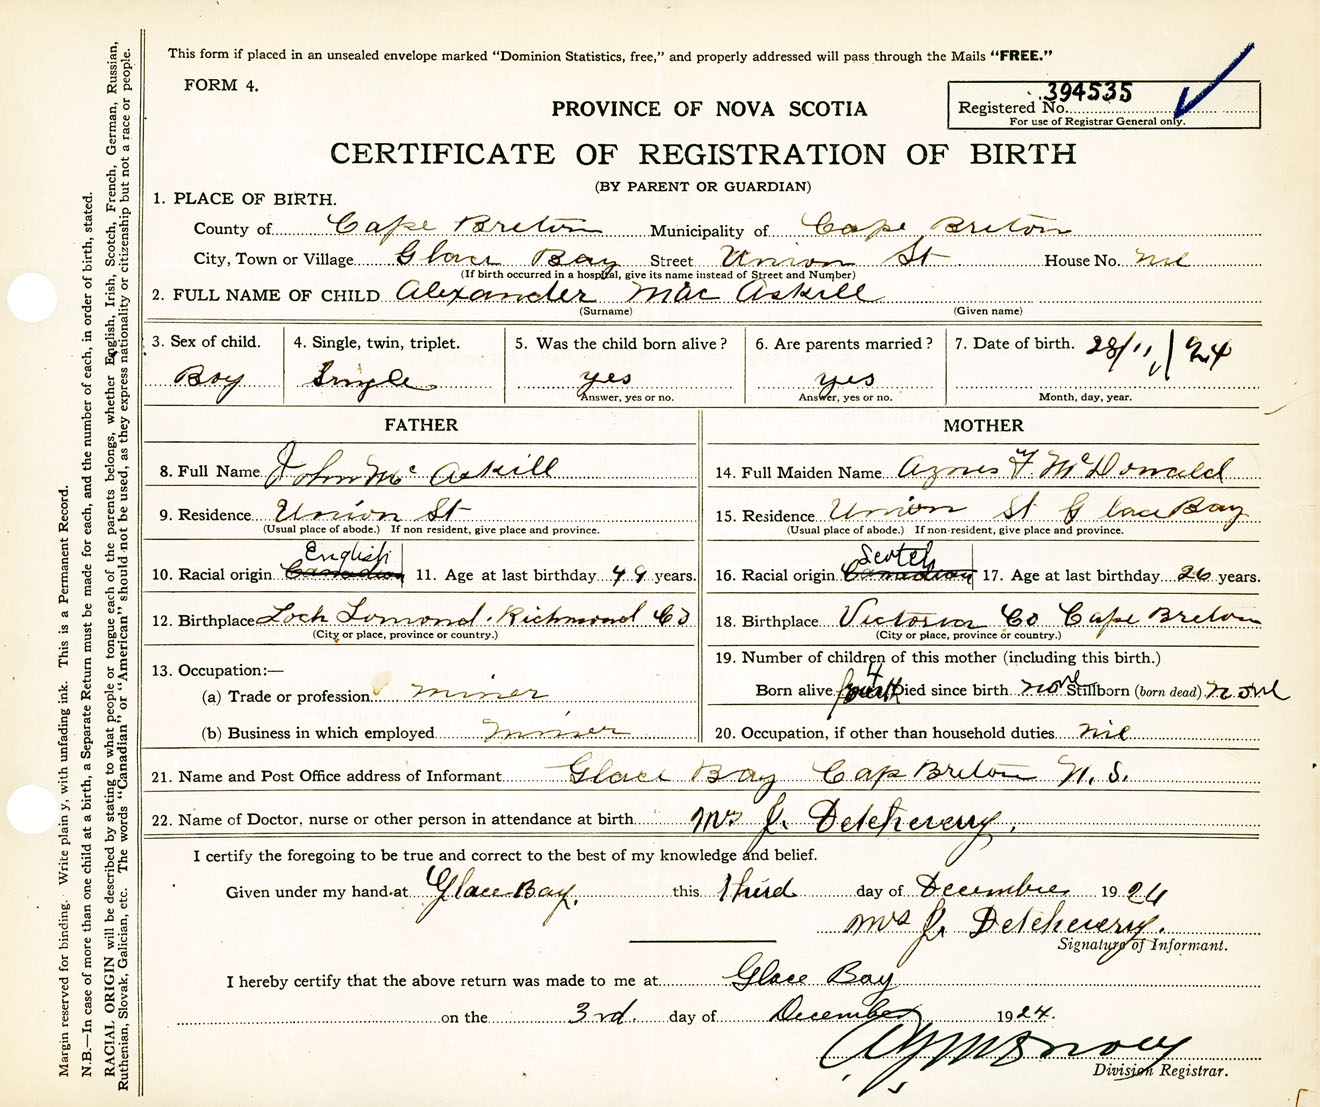 This form if placed in an unsealed envelope marked "Dominion Statistics, free," and properly addressed will pass through the Mails "FREE."
FORM 4.
Registered No. 394535
For use of Registrar General only.
PROVINCE OF NOVA SCOTIA
CERTIFICATE OF REGISTRATION OF BIRTH
(BY PARENT OR GUARDIAN)
1. PLACE OF BIRTH.
County of Cape Breton Municipality of Cape Breton
City, Town or Village Glace Bay Street Union St House No. nil
(If birth occurred in a hospital, give its name instead of Street and Number)
2. FULL NAME OF CHILD Alexander Mac Askill
(Surname) (Given name)
3. Sex of child. 4. Single, twin, triplet. 5. Was the child born alive? 6. Are parents married? 7. Date of birth. 28/11/24
Boy Single yes yes
Answer, yes or no. Answer, yes or no. Month, day, year.
FATHER MOTHER
8. Full Name John Mc Askill 14. Full Maiden Name Agnes F. McDonald
9. Residence Union St 15. Residence Union St Glace Bay
(Usual place of abode.) If non resident, give place and province. (Usual place of abode.) If non-resident, give place and province.
English Scotch
10. Racial origin Canadian 11. Age at last birthday 49 years. 16. Racial origin Canadian 17. Age at last birthday 26 years.
12. Birthplace Loch Lomond. Richmond Co 18. Birthplace Victoria Co Cape Breton
(City or place, province or country.) (City or place, province or country.)
13. Occupation:— 19. Number of children of this mother (including this birth.)
4
(a) Trade or profession miner Born alive fourth Died since birth none Stillborn (born dead) none
(b) Business in which employed miner 20. Occupation, if other than household duties nil
21. Name and Post Office address of Informant Glace Bay Cap Breton N. S.
22. Name of Doctor, nurse or other person in attendance at birth Mrs J. Detcheverry.
I certify the foregoing to be true and correct to the best of my knowledge and belief.
Given under my hand at Glace Bay. this third day of Decembre 1924
Mrs J. Detcheverry.
Signature of Informant.
I hereby certify that the above return was made to me at Glace Bay
on the 3rd. day of December 1924.
Division Registrar.
Margin reserved for binding. Write plainly, with unfading ink. This is a Permanent Record.
N.B.—In case of more than one child at a birth, a Separate Return must be made for each, and the number of each, in order of birth, stated.
RACIAL ORIGIN will be described by stating to what people or tongue each of the parents belongs, whether English, Irish, Scotch, French, German, Russian,
Ruthenian, Slovak, Galician, etc. The words "Canadian" or "American" should not be used, as they express nationality or citizenship but not a race or people.